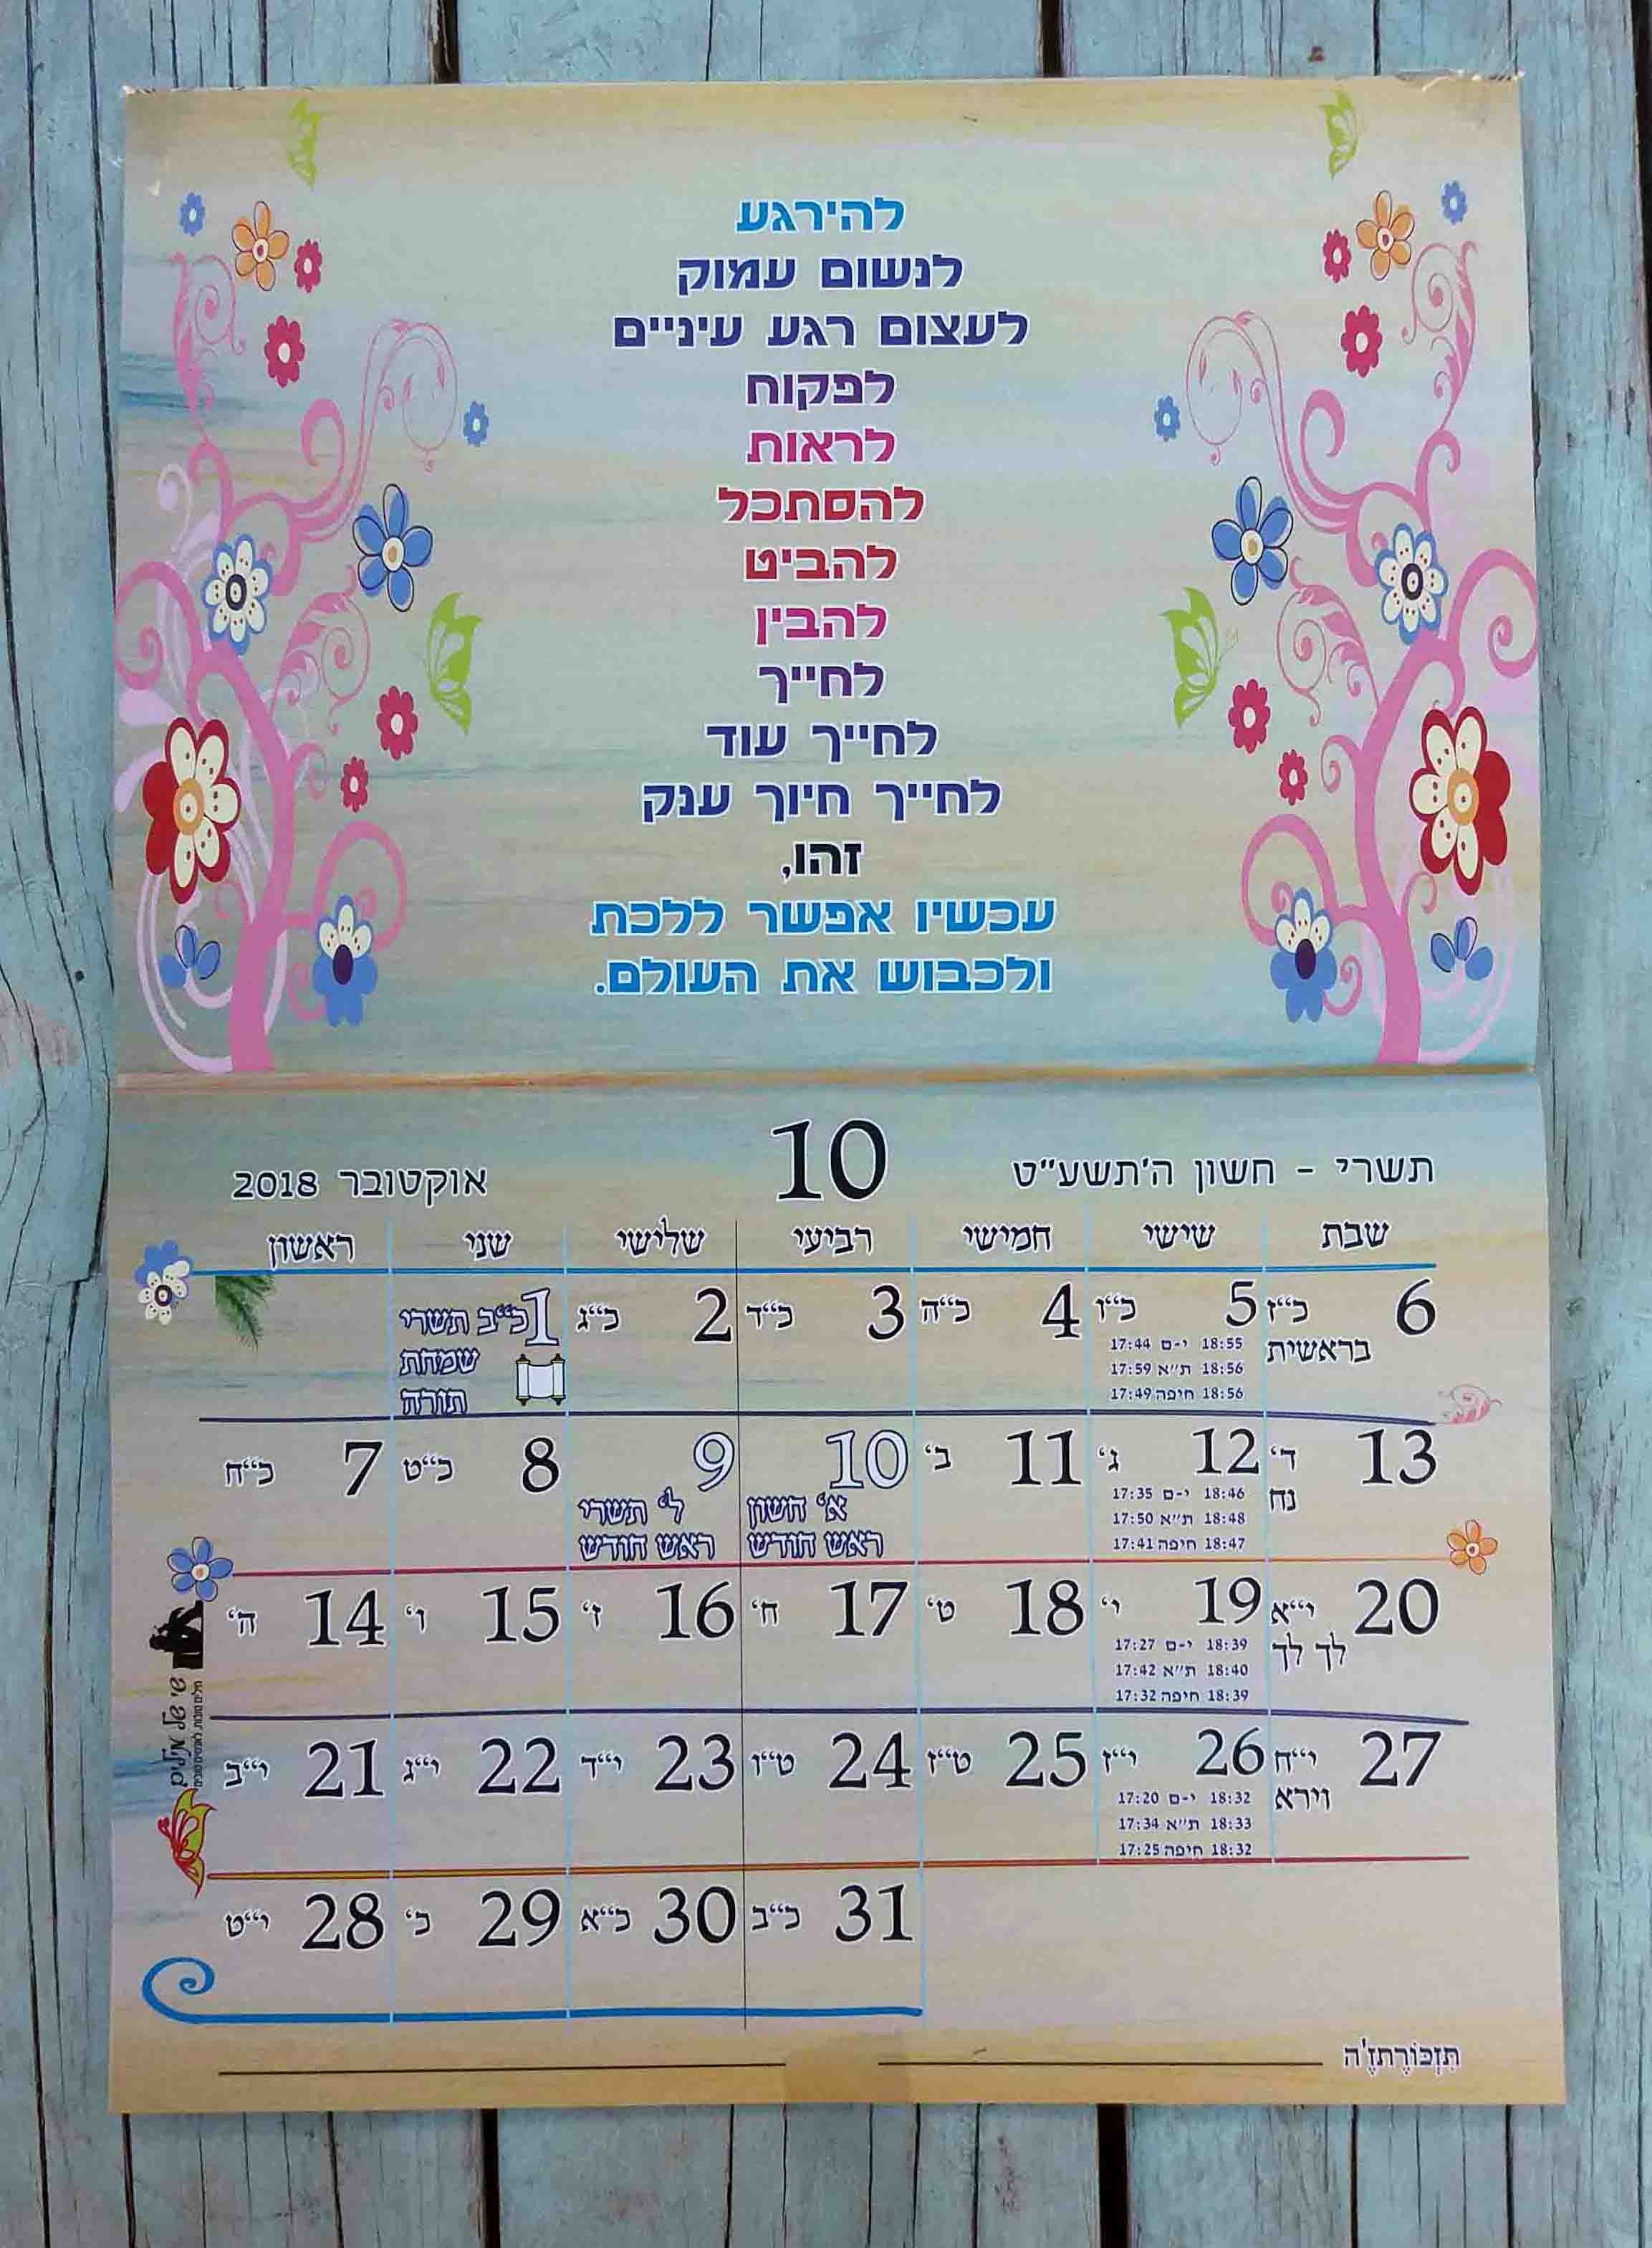 להירגע
לנשום עמוק
לעצום רגע עיניים
לפקוח
לראות
להסתכל
להביט
להבין
לחייך
לחייך עוד
לחייך חיוך ענק
זהו,
עכשיו אפשר ללכת
ולכבוש את העולם.
תשרי - חשון ה'תשע"ט 10 אוקטובר 2018
ראשון שני שלישי רביעי חמישי שישי שבת
1 כ"ב תשרי
שמחת
תורה
2 כ"ג
3 כ"ד
4 כ"ה
5 כ"ו
17:44 י-ם 18:55
17:59 ת"א 18:56
17:49 חיפה 18:56
6 כ"ז
בראשית
7 כ"ח
8 כ"ט
9
ל' תשרי
ראש חודש
10
א' חשון
ראש חודש
11 ב'
12 ג'
17:35 י-ם 18:46
17:50 ת"א 18:48
17:41 חיפה 18:47
13 ד'
נח
14 ה'
15 ו'
16 ז'
17 ח'
18 ט'
19 י'
17:27 י-ם 18:39
17:42 ת"א 18:40
17:32 חיפה 18:39
20 י"א
לך לך
21 י"ב
22 י"ג
23 י"ד
24 ט"ו
25 ט"ז
26 י"ז
17:20 י-ם 18:32
17:34 ת"א 18:33
17:25 חיפה 18:32
27 י"ח
וירא
28 י"ט
29 כ'
30 כ"א
31 כ"ב
שי של מילים
מילים טובות לאנשים טובים
תִזְכּוֹרֶתזֶ'ה